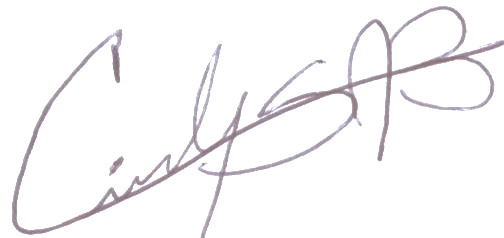 Cindy SB